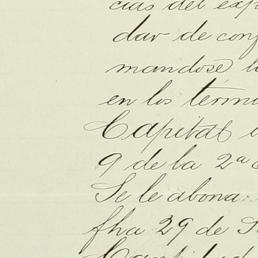 cias del exp
dar de conf
mandose l
en los térm
Capital
9 de la 2ª
Se le abona
fha 29 de
Cantidad